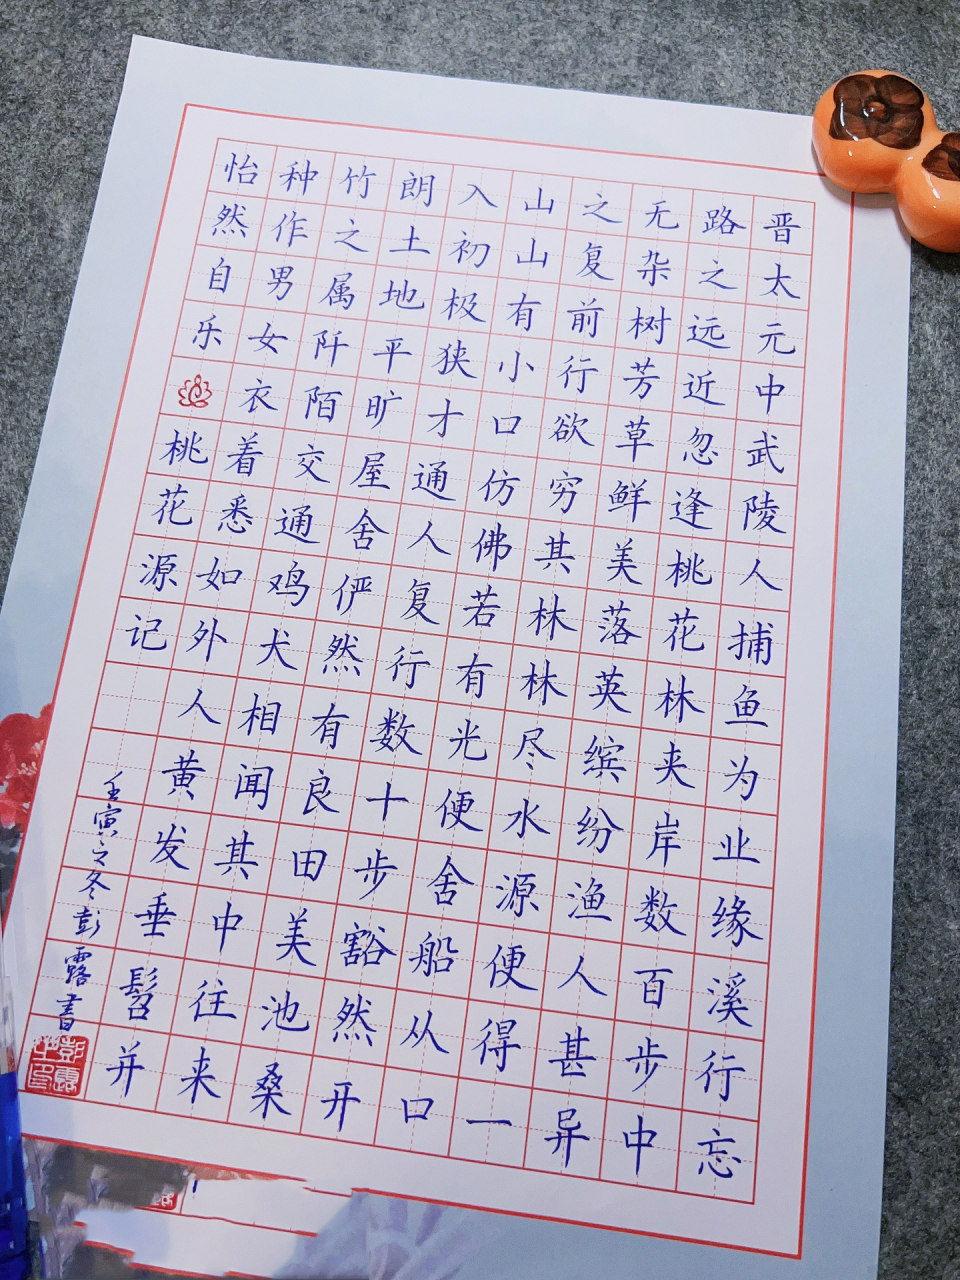 晋太元中武陵人捕鱼为业缘溪行忘
路之远近忽逢桃花林夹岸数百步中
无杂树芳草鲜美落英缤纷渔人甚异
之复前行欲穷其林林尽水源便得一
山山有小口仿佛若有光便舍船从口
入初极狭才通人复行数十步豁然开
朗土地平旷屋舍俨然有良田美池桑
竹之属阡陌交通鸡犬相闻其中往来
种作男女衣着悉如外人黄发垂髫并
怡然自乐
桃花源记
壬寅之冬彭露書
彭露